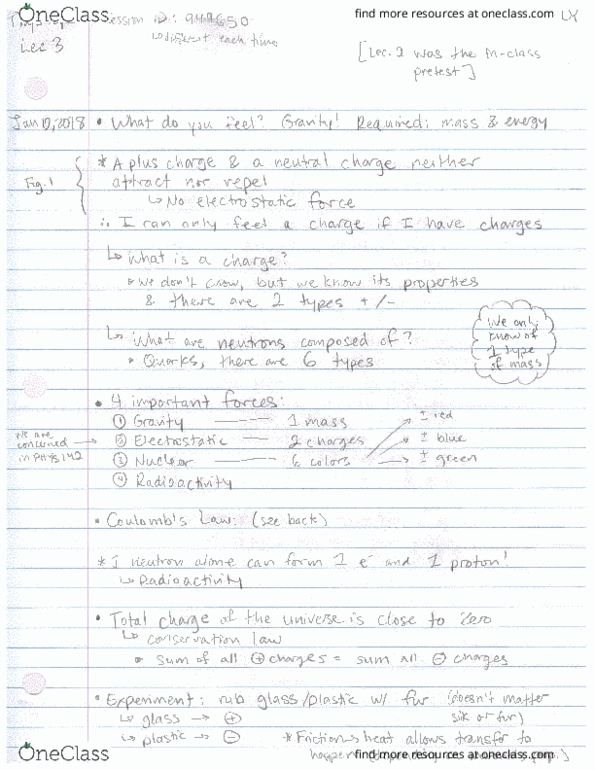 OneClass
find more resources at oneclass.com
session ID: 949650
↳ different each time
Lec 3
[Lec. 2 was the in-class
pretest]
Jan 10, 2018 • What do you feel? Gravity! Required: mass & energy
Fig. 1
* A plus charge & a neutral charge neither
attract nor repel
↳ No electrostatic force
∴ I can only feel a charge if I have charges
↳ What is a charge?
* We don't know, but we know its properties
& there are 2 types +/-
We only
know of
1 type
of mass
↳ What are neutrons composed of?
• Quarks, there are 6 types
• 4 important forces:
① Gravity — 1 mass
② Electrostatic — 2 charges
③ Nuclear — 6 colors
④ Radioactivity
± red
± blue
± green
we are
concerned
in PHYS 142
• Coulomb's Law: (see back)
* 1 neutron alone can form 1 e⁻ and 1 proton!
↳ Radioactivity
• Total charge of the universe is close to zero
↳ conservation law
• sum of all ⊕ charges = sum all ⊖ charges
• Experiment: rub glass/plastic w/ fur (doesn't matter
silk or fur)
↳ glass → ⊕
↳ plastic → ⊖ * Friction's heat allows transfer to
happen
OneClass
find more resources at oneclass.com